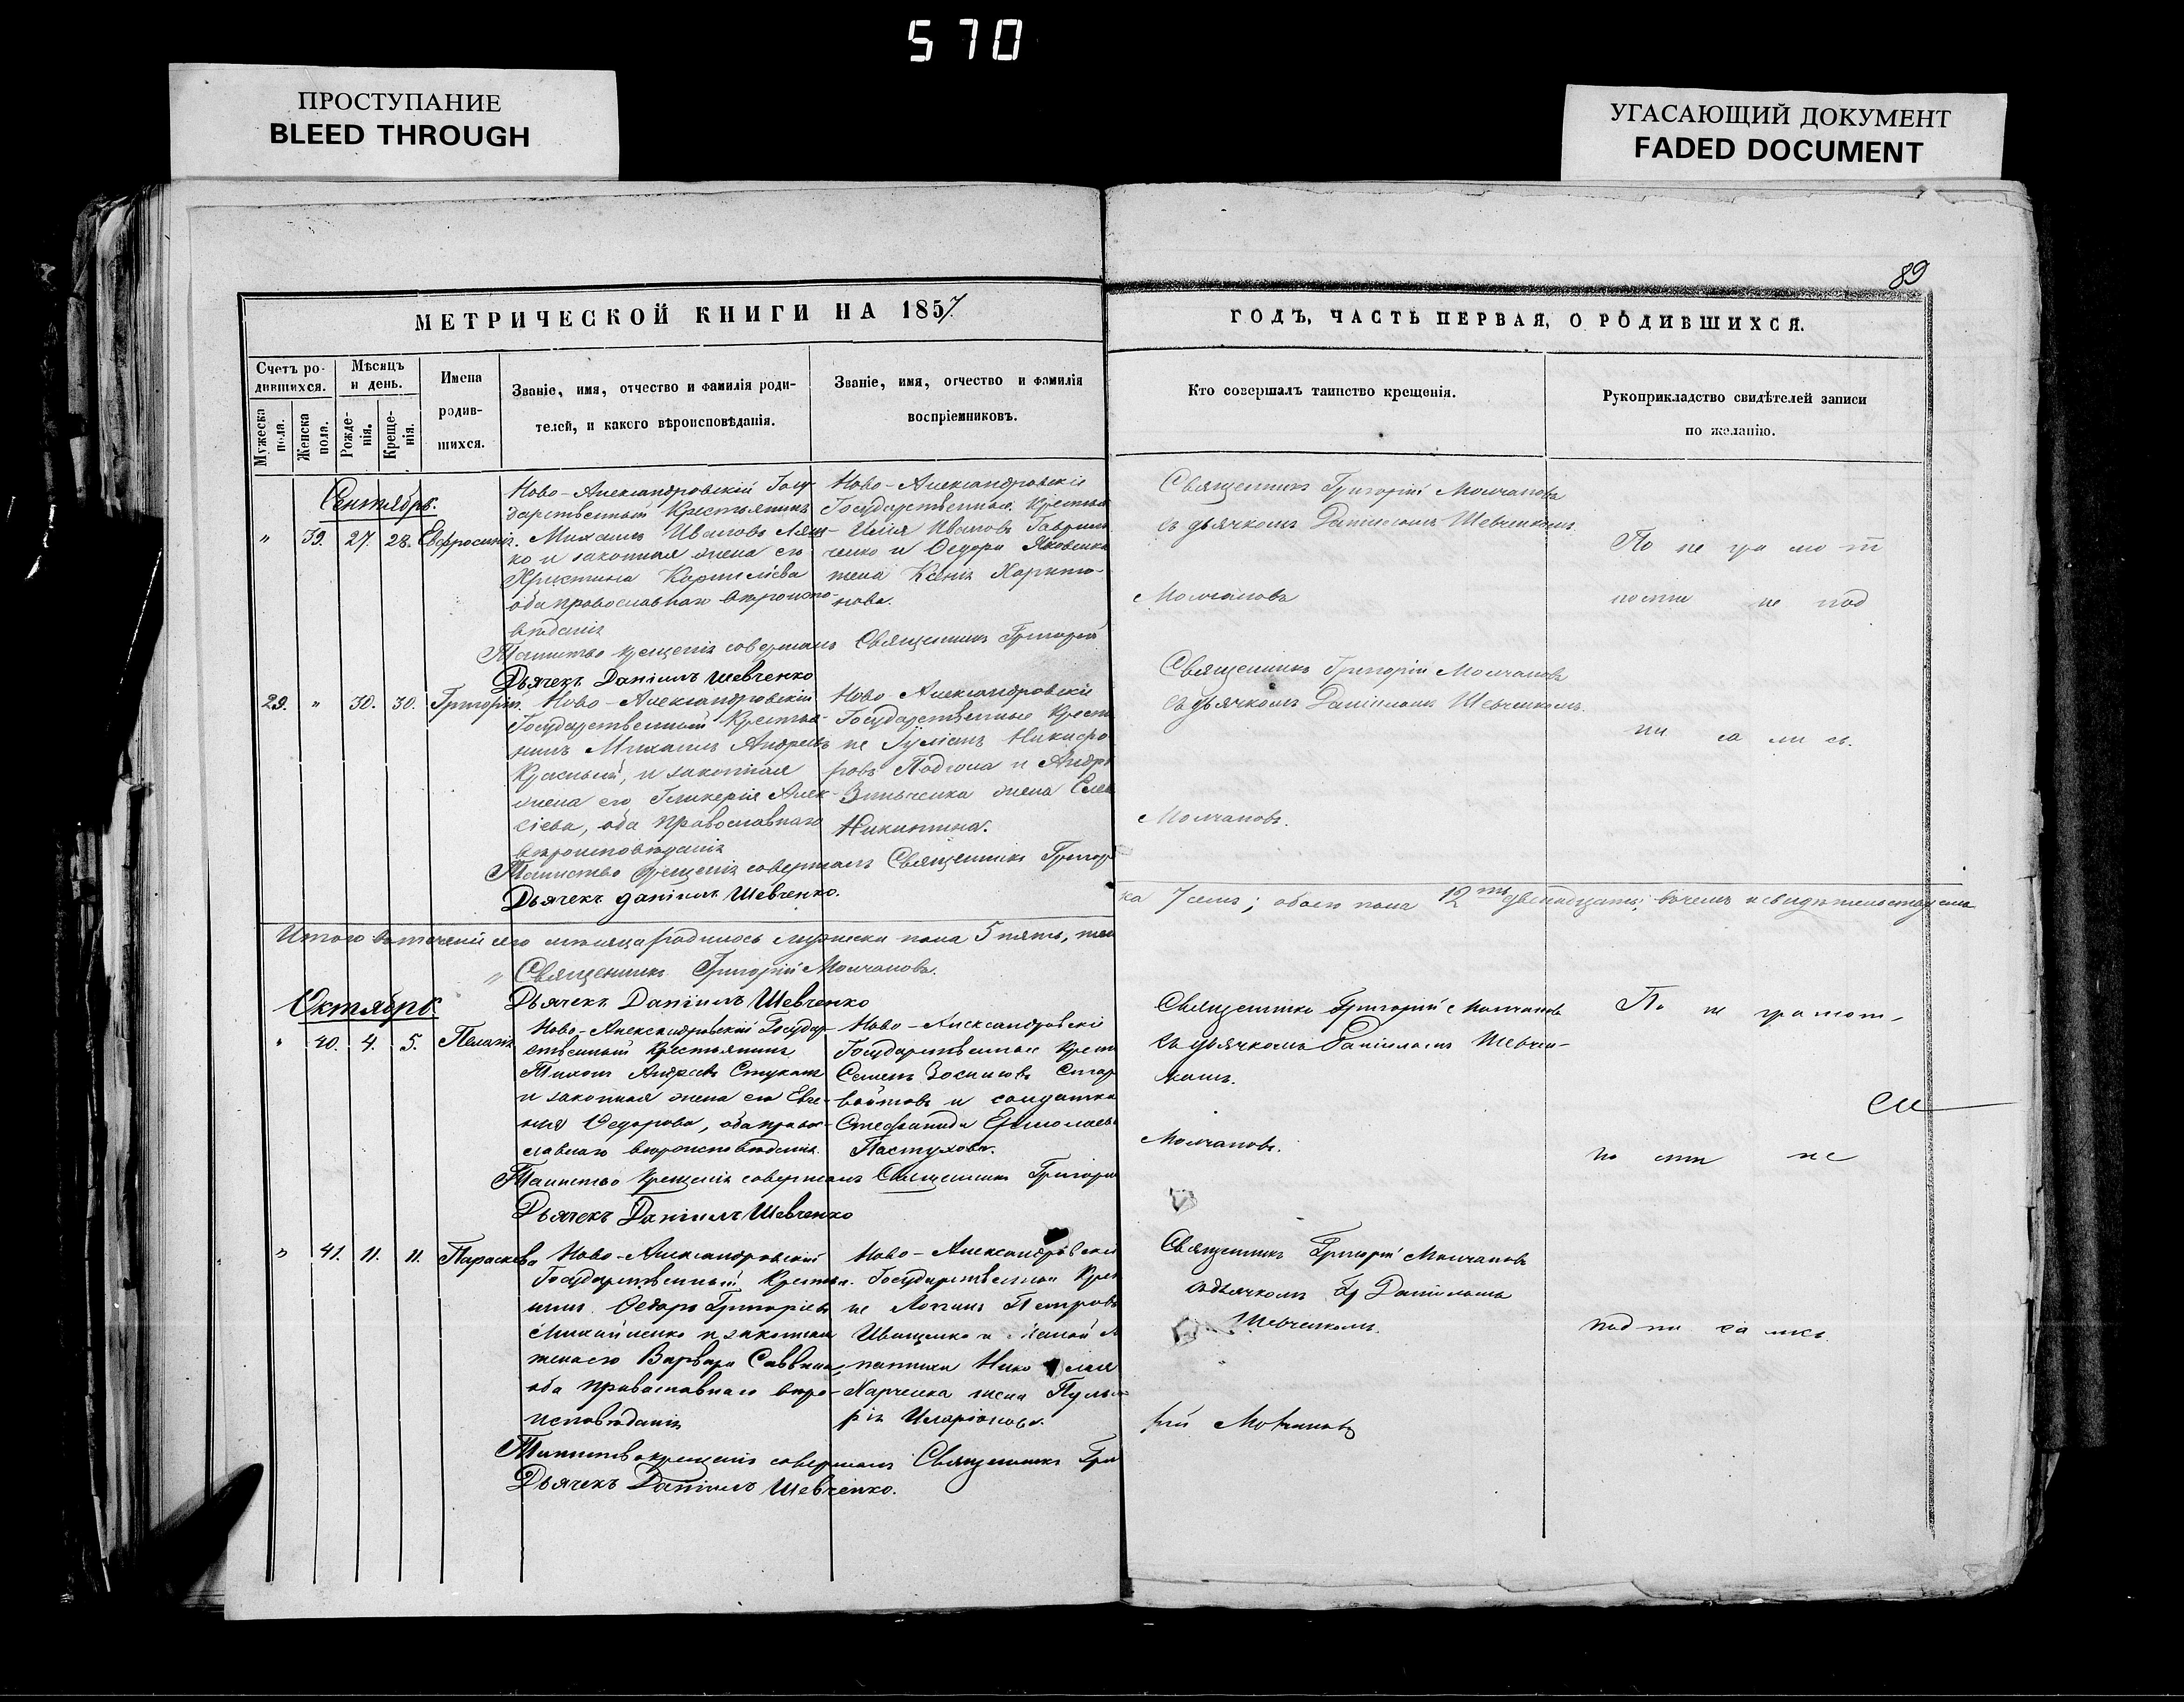 570
ПРОСТУПАНИЕ
BLEED THROUGH
УГАСАЮЩИЙ ДОКУМЕНТ
FADED DOCUMENT
89
МЕТРИЧЕСКОЙ КНИГИ НА 1857
ГОДЪ, ЧАСТЬ ПЕРВАЯ, О РОДИВШИХСЯ.
Счетъ ро-
дившихся.
Мужеска
пола.
Женска
пола.
Мѣсяцъ
и день.
Рожде-
нія.
Креще-
нія.
Имена
родив-
шихся.
Званіе, имя, отчество и фамилія роди-
телей, и какого вѣроисповѣданія.
Званіе, имя, отчество и фамилія
воспріемниковъ.
Кто совершалъ таинство крещенія.
Рукоприкладство свидѣтелей записи
по желанію.
Сентябрь.
" 39. 27. 28. Евфросинія.
Ново-Александровскій Госу-
дарственный Крестьянинъ
Михаилъ Ивановъ
ко и законная жена его
Христина Корнилiева
оба православнаго вѣроиспо-
вѣданія
Ново-Александровскіе
Государственные Крестья
Илія Ивановъ Гаврил
ченко и Ѳедора Яковенка
жена Ксенія Харито-
нова.
Священникъ Григорій Молчановъ
съ дьячкомъ Даніиломъ Шевченкомъ.
По не гра мо т
Таинство крещенія совершалъ Священникъ Григорій
Молчановъ
ности не под
Дьячекъ Даніилъ Шевченко
29. " 30. 30. Григорій.
Ново-Александровскій
Государственный Крестья-
нинъ Михаилъ Андреевъ
Красный, и законная
жена его Гликерія Алек-
сіева, оба православнаго
вѣроисповѣданія
Ново Александровскіе
Государственные Кресть
не Іуліанъ Никифо
ровъ Подгона и Андре
Зинченка жена Еле
Никитина.
Священникъ Григорій Молчановъ
съ дьячкомъ Даніиломъ Шевченкомъ.
пи са ли сь.
Таинство крещенія совершалъ Священникъ Григор
Молчановъ.
Дьячекъ Даніилъ Шевченко.
Итого въ теченіи сего мѣсяца родилось мужеска пола 5 пять, жен
ка 7 семь; обоего пола 12ть двенадцать; въ чемъ и свидѣтельствуемъ
Священникъ Григорій Молчановъ.
Дьячекъ Даніилъ Шевченко
Октябрь.
" 40. 4. 5. Пелагія
Ново-Александровскій Государ-
ственный крестьянинъ
Тихонъ Андреевъ
и законная жена его Евге-
нія Ѳедорова, оба право-
славнаго вѣроисповѣданія.
Ново-Александровскіе
Государственные Кресть
Семенъ
войтовъ и солдатка
Стефанида Ермолаева
Пастухова.
Священникъ Григорій Молчановъ
съ дьячкомъ Даніиломъ Шевчен-
комъ.
По не грамот-
Таинство крещенія совершалъ Священникъ Григорій
Молчановъ.
но сти не
Дьячекъ Даніилъ Шевченко
" 41. 11. 11. Параскева
Ново-Александровскій
Государственный Крестья-
нинъ Ѳедоръ Григорьевъ
Михайленко и законная
жена его Варвара Саввина,
оба православнаго вѣро-
исповѣданія
Ново-Александровскі
Государственный Крес
не Логинъ Петровъ
Иващенко и
Николая
Харченка жена Пульхе
рія Иларіонова.
Священникъ Григорій Молчановъ
съ дьячкомъ Даніиломъ
Шевченкомъ.
под пи са лись
Таинство крещенія совершалъ Священникъ Гри
рій Молчановъ
Дьячекъ Даніилъ Шевченко.